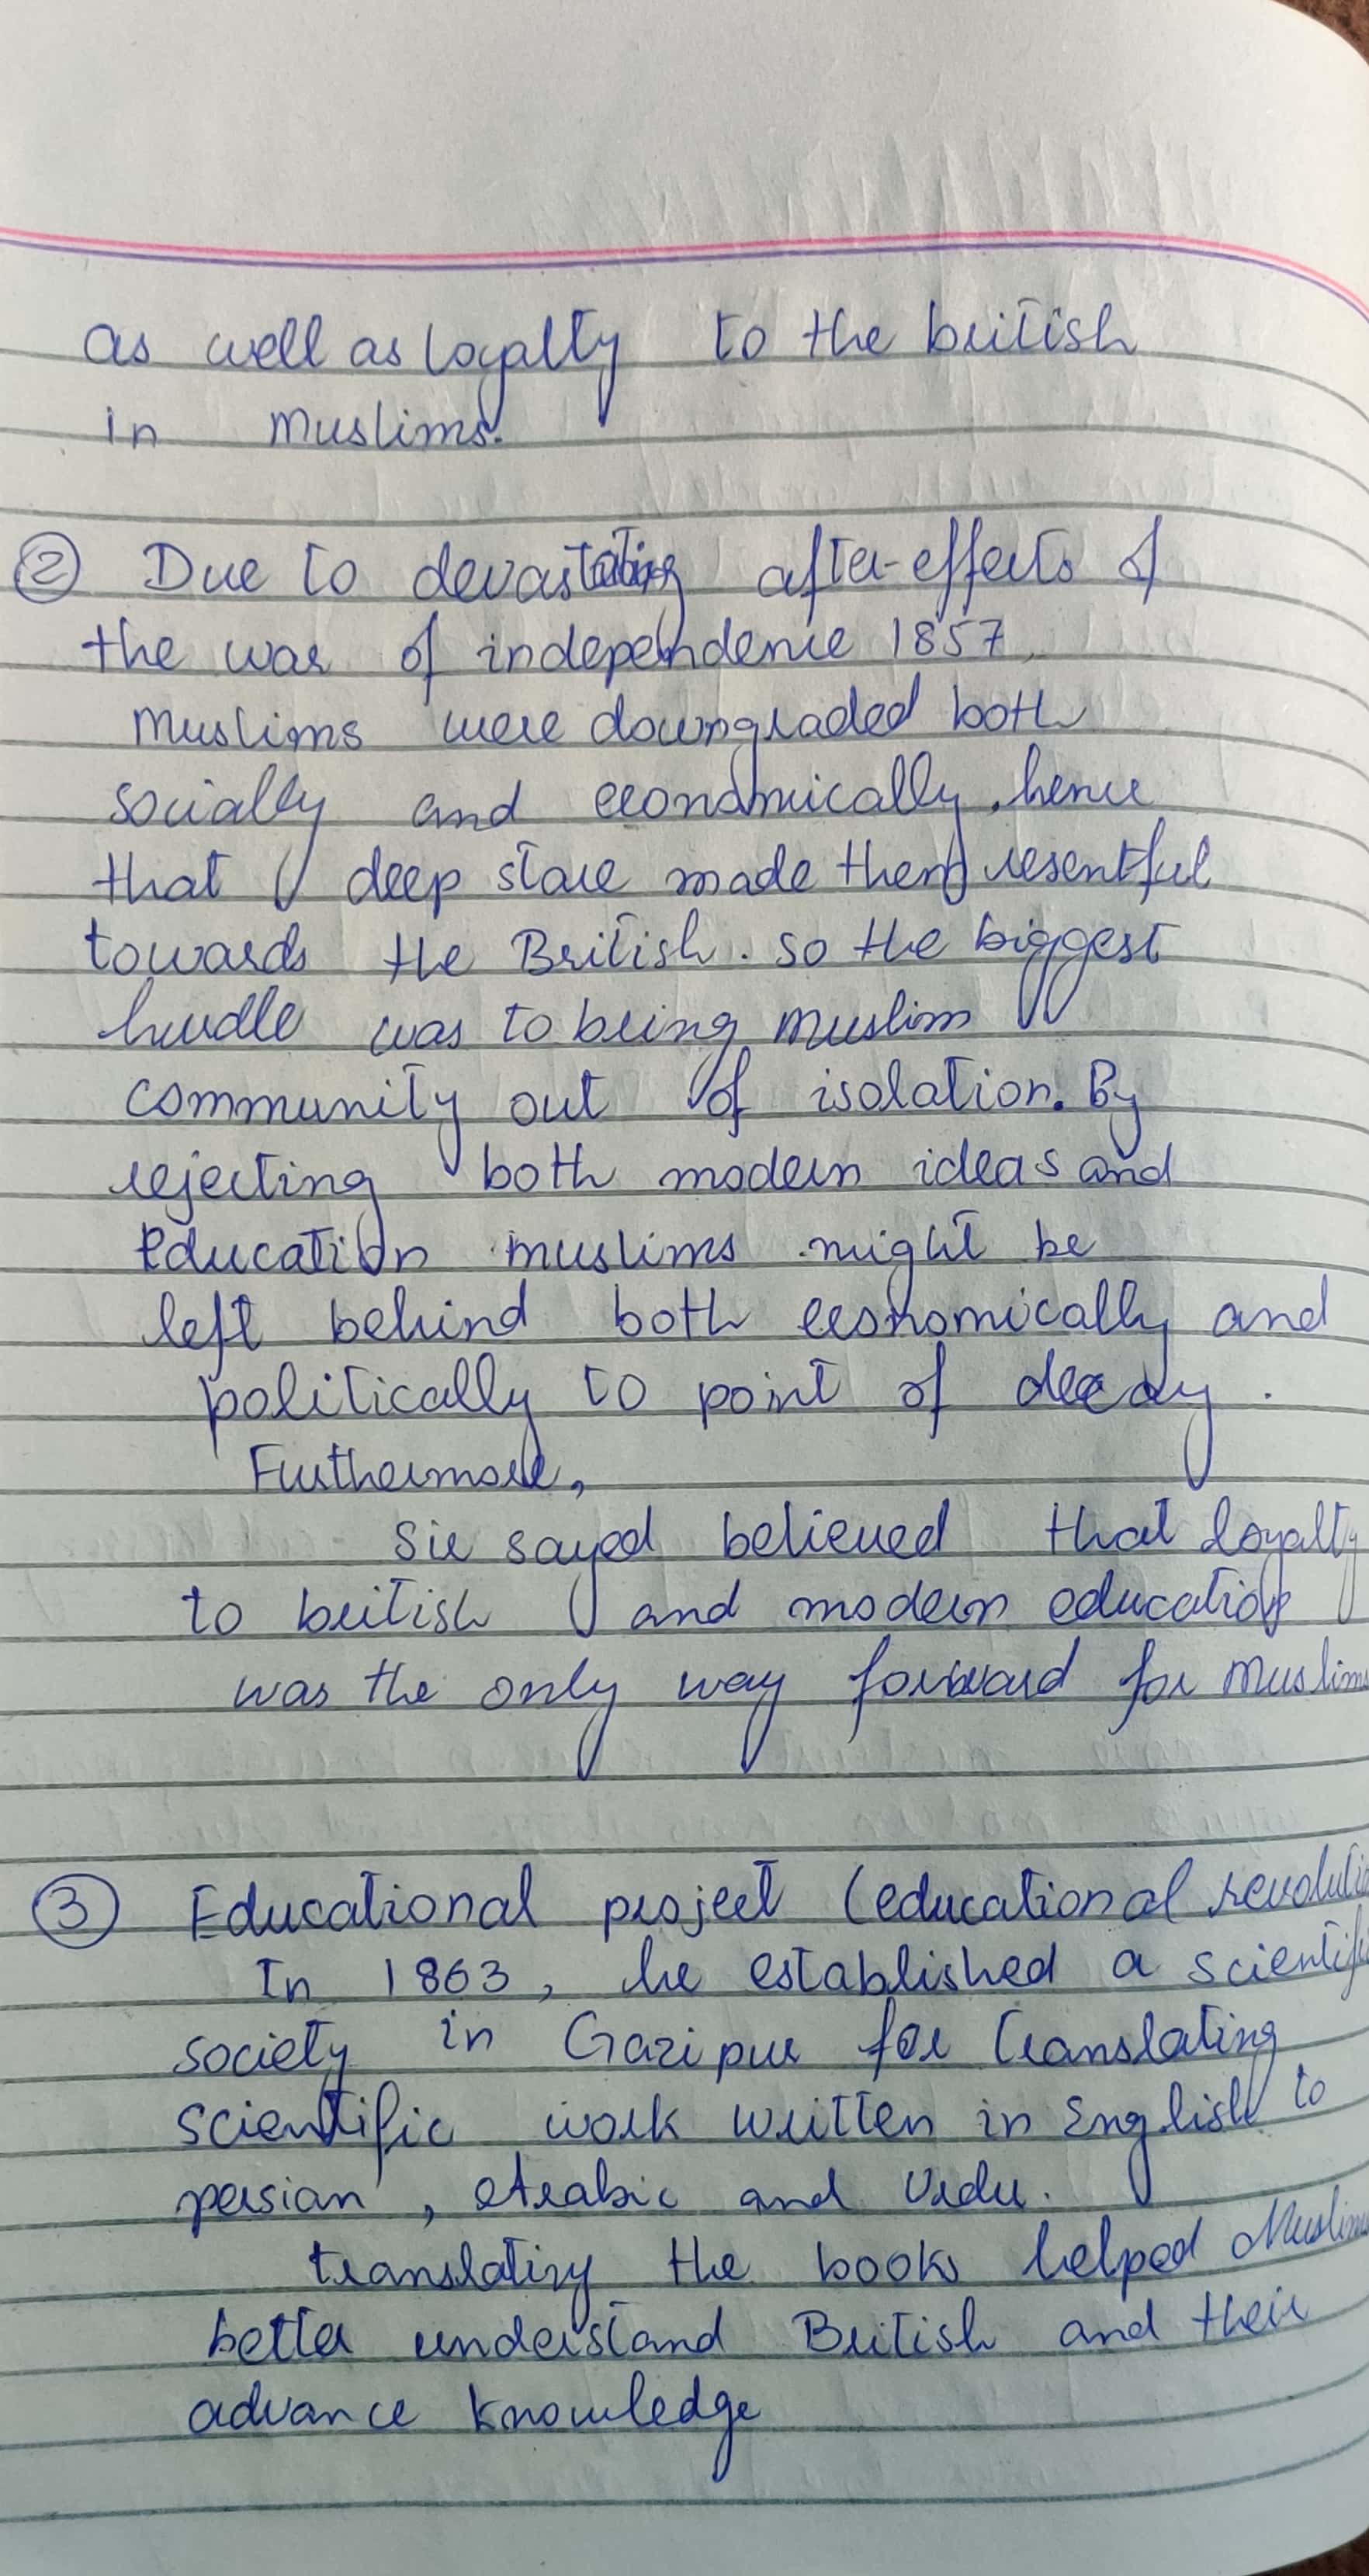 as well as loyalty to the british
in Muslims.
② Due to devastating after-effects of
the war of independence 1857,
Muslims were downgraded both
socially and economically, hence
that deep stare made them resentful
towards the British. so the biggest
hurdle was to bring Muslim
community out of isolation. By
rejecting both modern ideas and
Education muslims might be
left behind both economically and
politically to point of decay.
Furthermore,
Sir sayed believed that loyalty
to british and modern education
was the only way forward for Muslims
③ Educational project (educational revolution
In 1863, he established a scientific
society in Gazipur for translating
scientific work written in English to
persian, Arabic and Urdu.
translating the books helped Muslims
better understand British and their
advance knowledge